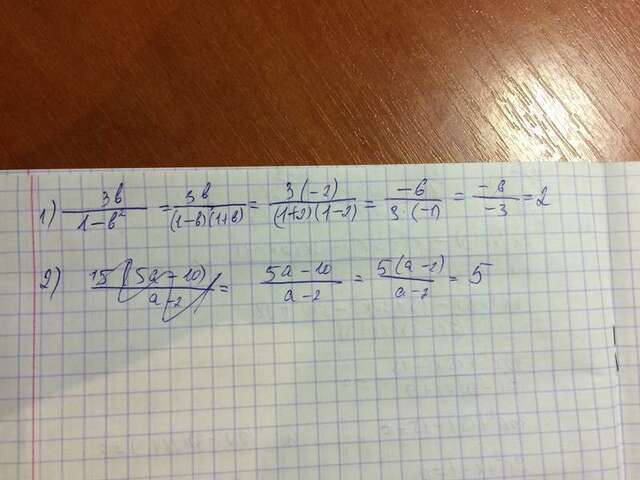 1) 3b/(1-b²) = 3b/((1-b)(1+b)) = 3(-2)/((1+2)(1-2)) = -6/(3·(-1)) = -6/-3 = 2
2) (5a-10)/(a-2) = (5a-10)/(a-2) = 5(a-2)/(a-2) = 5